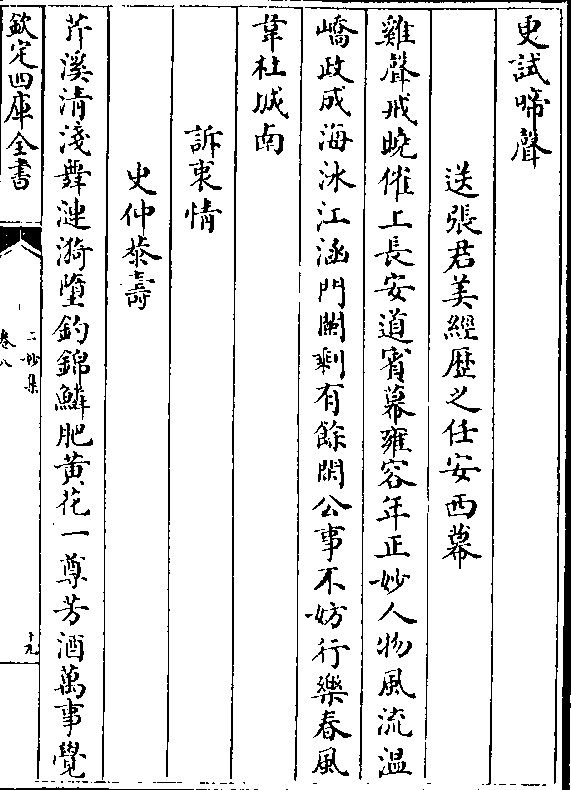 更試啼聲
送張君美經歴之任安西幕
雞聲戒曉催上長安道賓幕雍容年正妙人物風流温
嶠政成海沐江涵門闌剰有餘閒公事不妨行樂春風
韋杜城南
訴衷情
史仲恭壽
芹溪清淺舞漣漪墮釣錦鱗肥黄花一尊芳酒萬事覺
欽定四庫全書
二妙集
卷八
十九